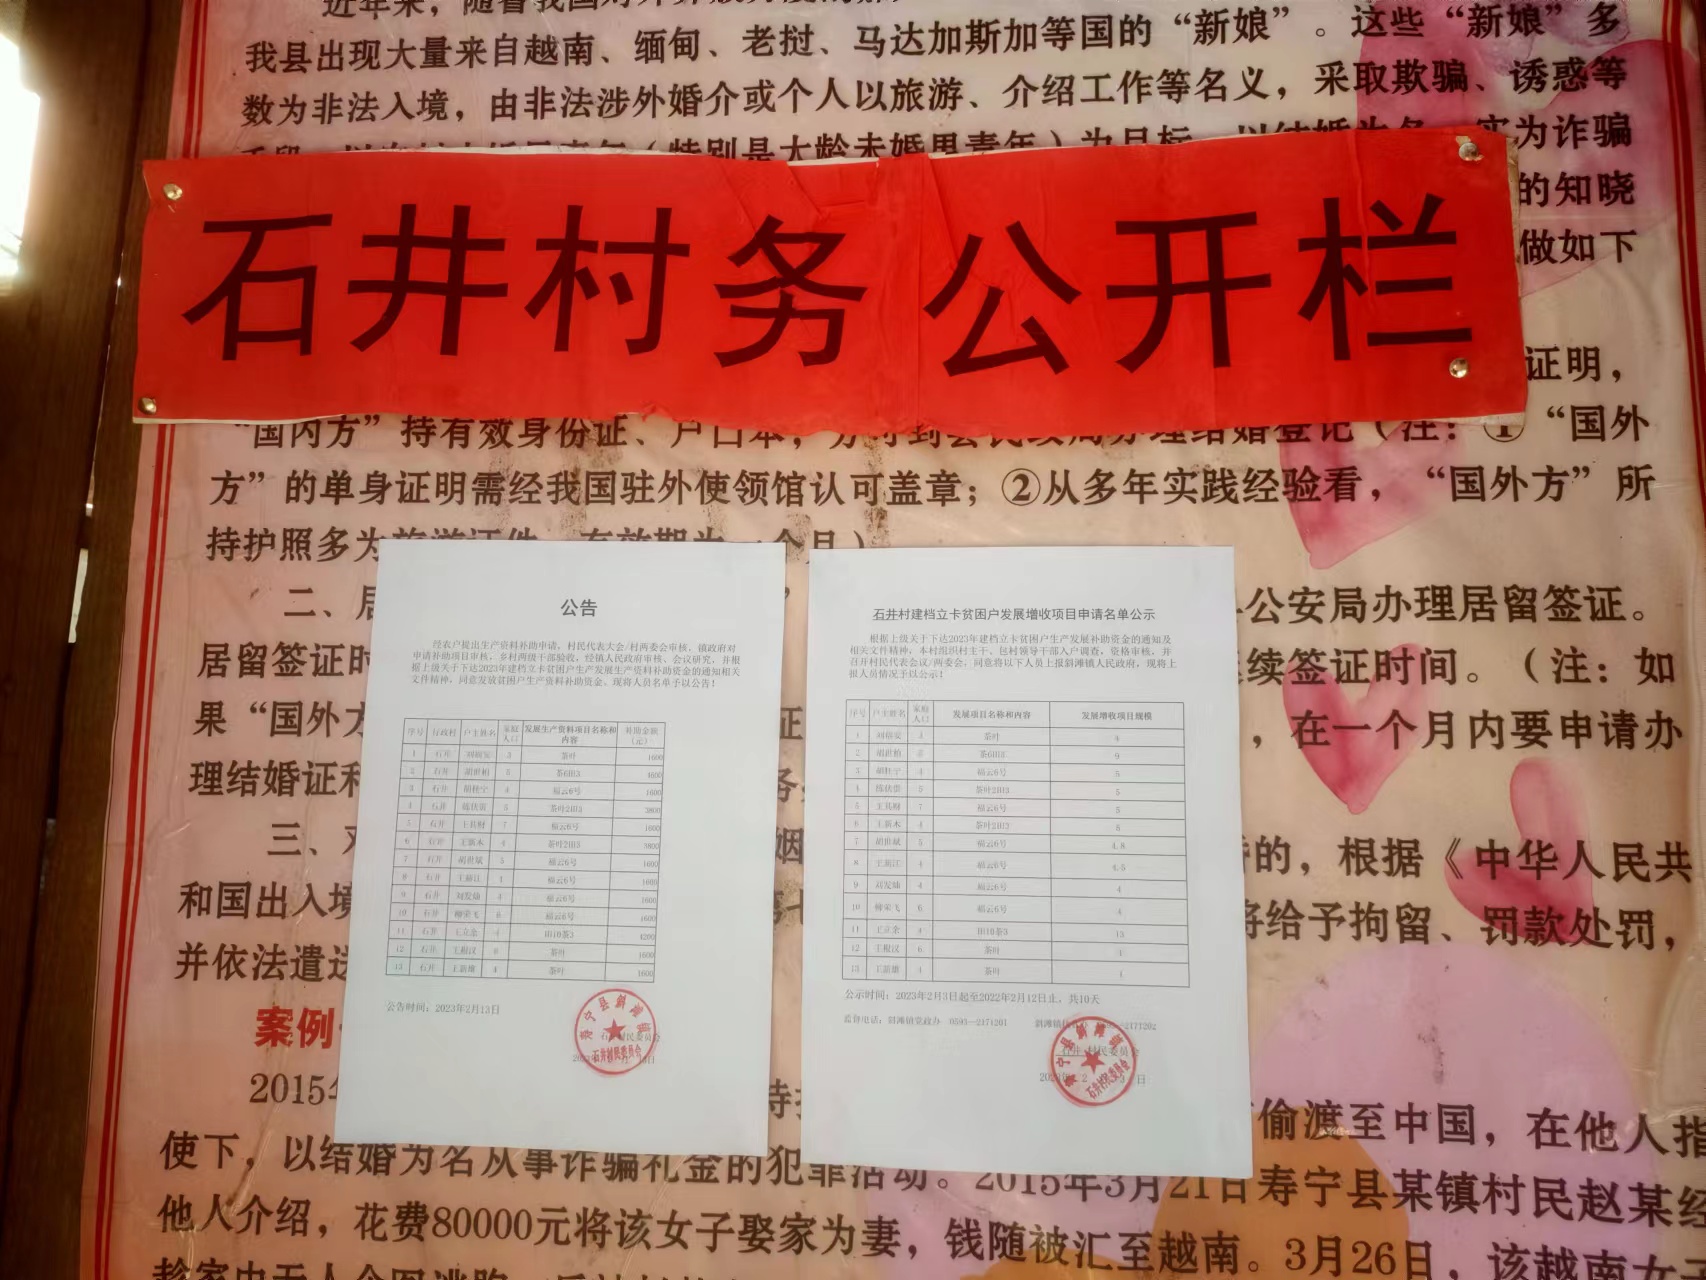 近年来，随着我国对外开放
我县出现大量来自越南、缅甸、老挝、马达加斯加等国的“新娘”。这些“新娘”多
数为非法入境，由非法涉外婚介或个人以旅游、介绍工作等名义，采取欺骗、诱惑等
（特别是大龄未婚男青年）为目标，以结婚为名，实为诈骗
的知晓
做如下
石井村务公开栏
证明，
“国内方”持有效身份证、户口本，分时到县民政局办理结婚登记（注：①“国外
方”的单身证明需经我国驻外使领馆认可盖章；②从多年实践经验看，“国外方”所
持护照多为旅游证件，有效期为一个月）
二、居
公安局办理居留签证。
居留签证时
续签证时间。（注：如
果“国外方
证
，在一个月内要申请办
理结婚证和
三、对
姻
的，根据《中华人民共
和国出入境
将给予拘留、罚款处罚，
并依法遣送
案例
2015年
偷渡至中国，在他人指
使下，以结婚为名从事诈骗礼金的犯罪活动。2015年3月21日寿宁县某镇村民赵某经
他人介绍，花费80000元将该女子娶家为妻，钱随被汇至越南。3月26日，该越南女子
公告
经农户提出生产资料补助申请，村民代表大会/村两委会审核，镇政府对
申请补助项目审核，乡村两级干部验收，经镇人民政府审核、会议研究，并根
据上级关于下达2023年建档立卡贫困户生产发展生产资料补助资金的通知相关
文件精神，同意发放贫困户生产资料补助资金。现将人员名单予以公告！
序号 行政村 户主姓名 家庭人口 发展生产资料项目名称和内容 补助金额（元）
1 石井 刘裕安 3 茶叶 1600
2 石井 胡世柏 5 茶6田3 4600
3 石井 胡桂宁 4 福云6号 1600
4 石井 5 茶叶2田3 3800
5 石井 王其财 7 福云6号 1600
6 石井 王新木 4 茶叶2田3 3800
7 石井 胡世斌 5 福云6号 1600
8 石井 4 福云6号 1600
9 石井 刘发灿 4 福云6号 1600
10 石井 柳荣飞 6 福云6号 1600
11 石井 王立余 4 田10茶3 4200
12 石井 王根汉 6 茶叶 1600
13 石井 王新雄 4 茶叶 1600
公告时间：2023年2月13日
寿宁县斜滩镇
石井村民委员会
石井村建档立卡贫困户发展增收项目申请名单公示
根据上级关于下达2023年建档立卡贫困户生产发展补助资金的通知及
相关文件精神，本村组织村主干、包村领导干部入户调查，资格审核，并
召开村民代表会议/两委会，同意将以下人员上报斜滩镇人民政府，现将上
报人员情况予以公示！
序号 户主姓名 家庭人口 发展项目名称和内容 发展增收项目规模
1 刘裕安 3 茶叶 4
2 胡世柏 5 茶6田3 9
3 胡桂宁 4 福云6号 5
4 5 茶叶2田3 5
5 王其财 7 福云6号 5
6 王新木 4 茶叶2田3 5
7 胡世斌 5 福云6号 4.8
8 4 福云6号 4.5
9 刘发灿 4 福云6号 4
10 柳荣飞 6 福云6号 4
11 王立余 4 田10茶3 13
12 王根汉 6 茶叶 4
13 王新雄 4 茶叶 4
公示时间：2023年2月3日起至2022年2月12日止，共10天
监督电话：斜滩镇党政办 0593—2171201
石井 村民委员会
寿宁县斜滩镇
石井村民委员会